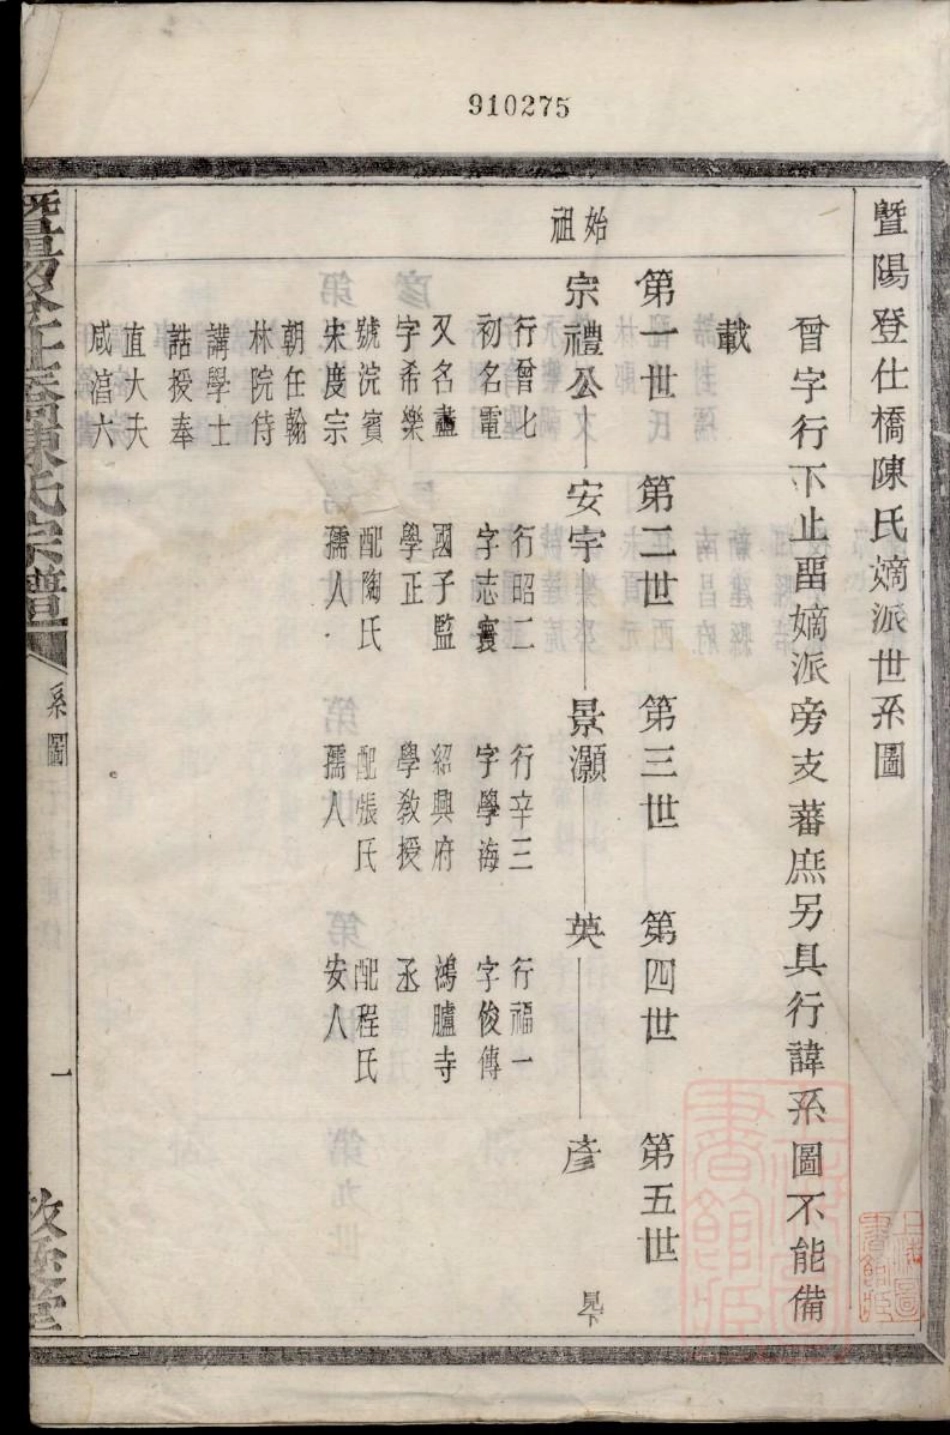 910275
暨陽登仕橋陳氏嫡派世系圖
曾字行下止畱嫡派旁支蕃庶另具行諱系圖不能備
載
第一世
第二世
第三世
第四世
第五世
始祖
宗禮公
安宇
景灝
英
彥
行曾北
初名電
又名藎
字希樂
號浣賓
宋度宗
朝任翰
林院侍
講學士
誥授奉
直大夫
咸湻六
行昭二
字志實
國子監
學正
配陶氏
孺人
行辛三
字學海
紹興府
學教授
配張氏
孺人
行福一
字俊傳
鴻臚寺
丞
配程氏
安人
陳氏宗譜
系圖
一